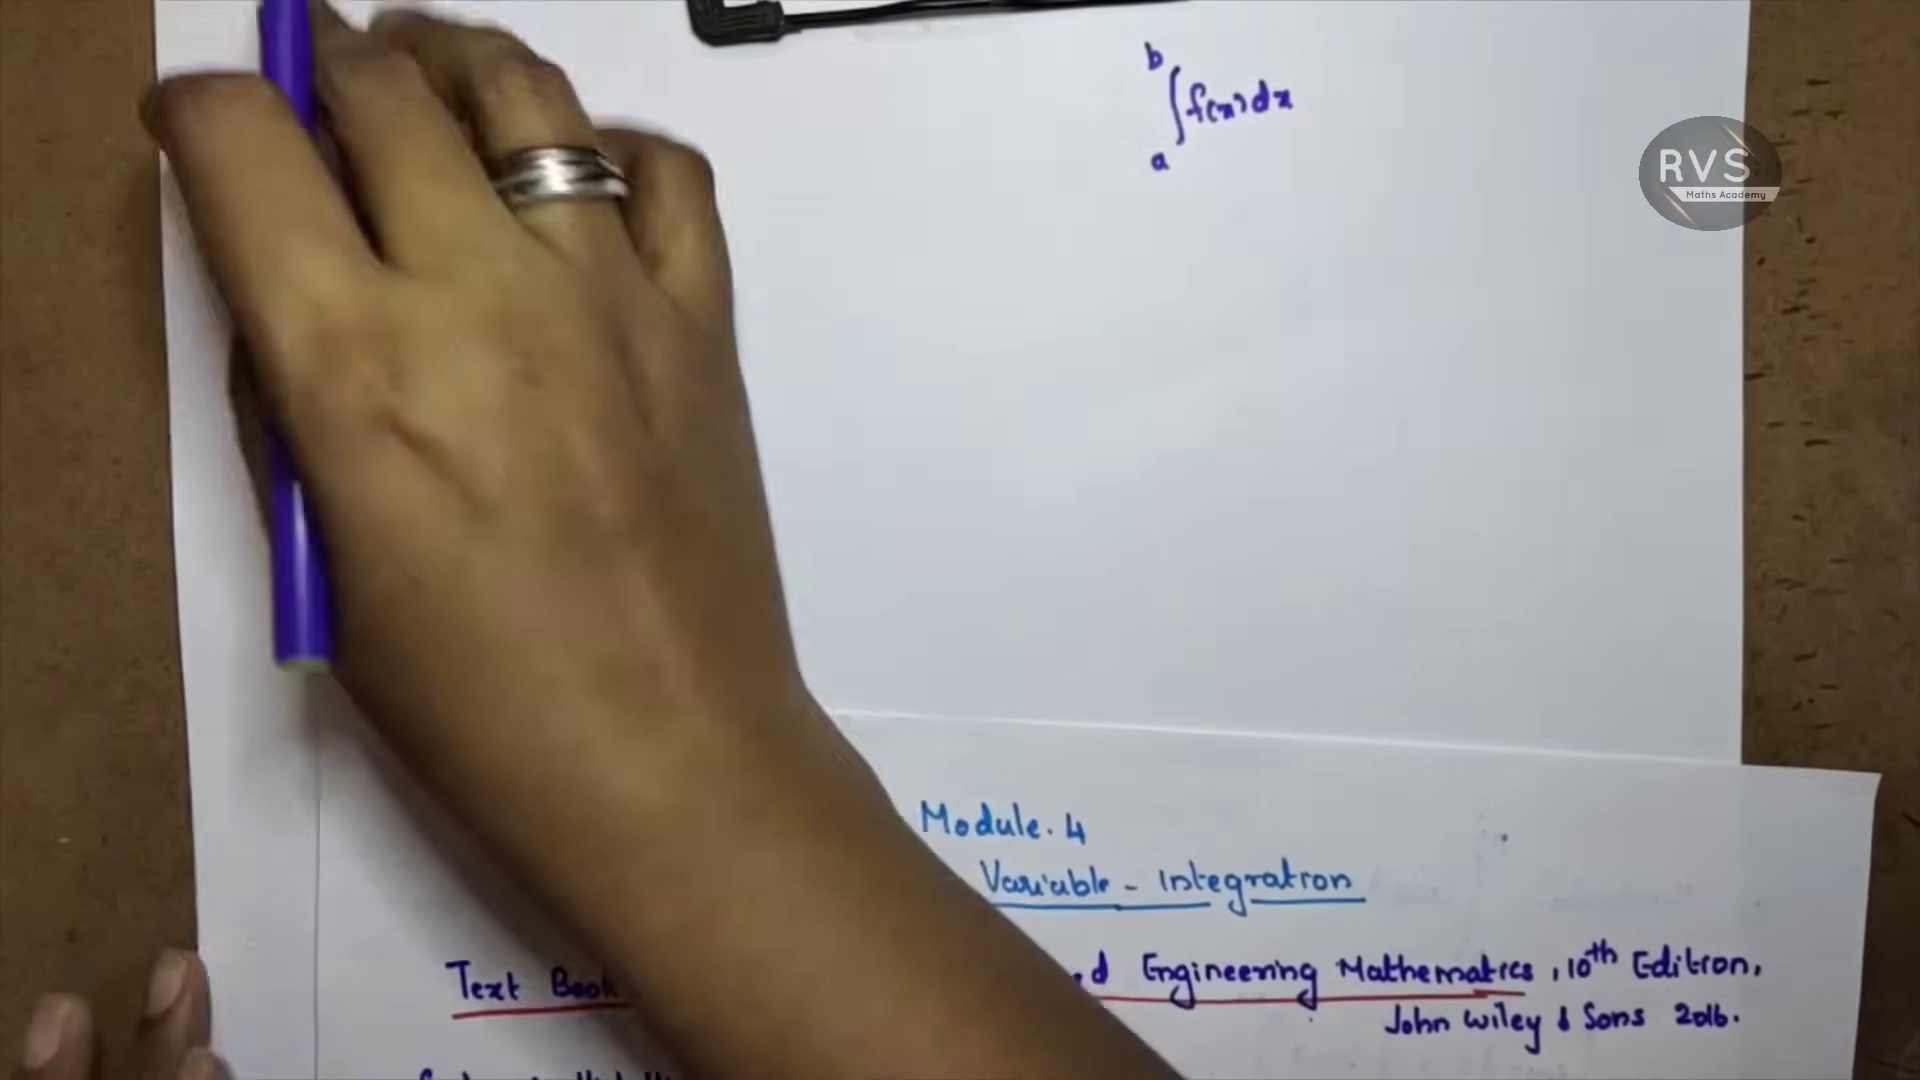 b
∫f(x)dx
a
RVS
Maths Academy
Module. 4
Variable - Integration
Text Book Engineering Mathematics, 10th Edition,
John Wiley & Sons 2016.